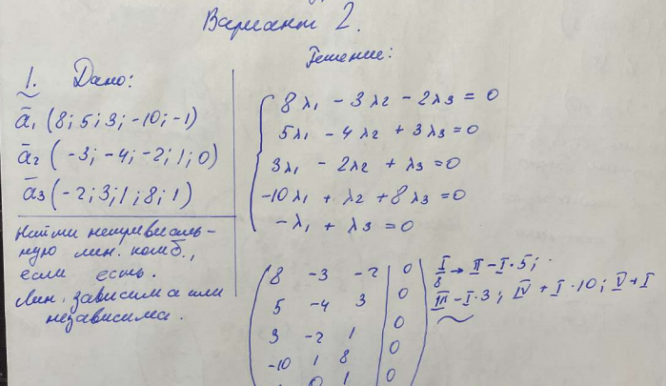 Вариант 2.
Решение:
1. Дано:
ā₁ (8; 5; 3; -10; -1)
ā₂ (-3; -4; -2; 1; 0)
ā₃ (-2; 3; 1; 8; 1)
Найти нетривиаль-
ную лин. комб.,
если есть.
Лин. зависима или
независима.
8λ₁ - 3λ₂ - 2λ₃ = 0
5λ₁ - 4λ₂ + 3λ₃ = 0
3λ₁ - 2λ₂ + λ₃ = 0
-10λ₁ + λ₂ + 8λ₃ = 0
-λ₁ + λ₃ = 0
8 -3 -2 | 0
5 -4 3 | 0
3 -2 1 | 0
-10 1 8 | 0
0 1 | 0
I/8 → II - I·5;
III - I·3; IV + I·10; V + I